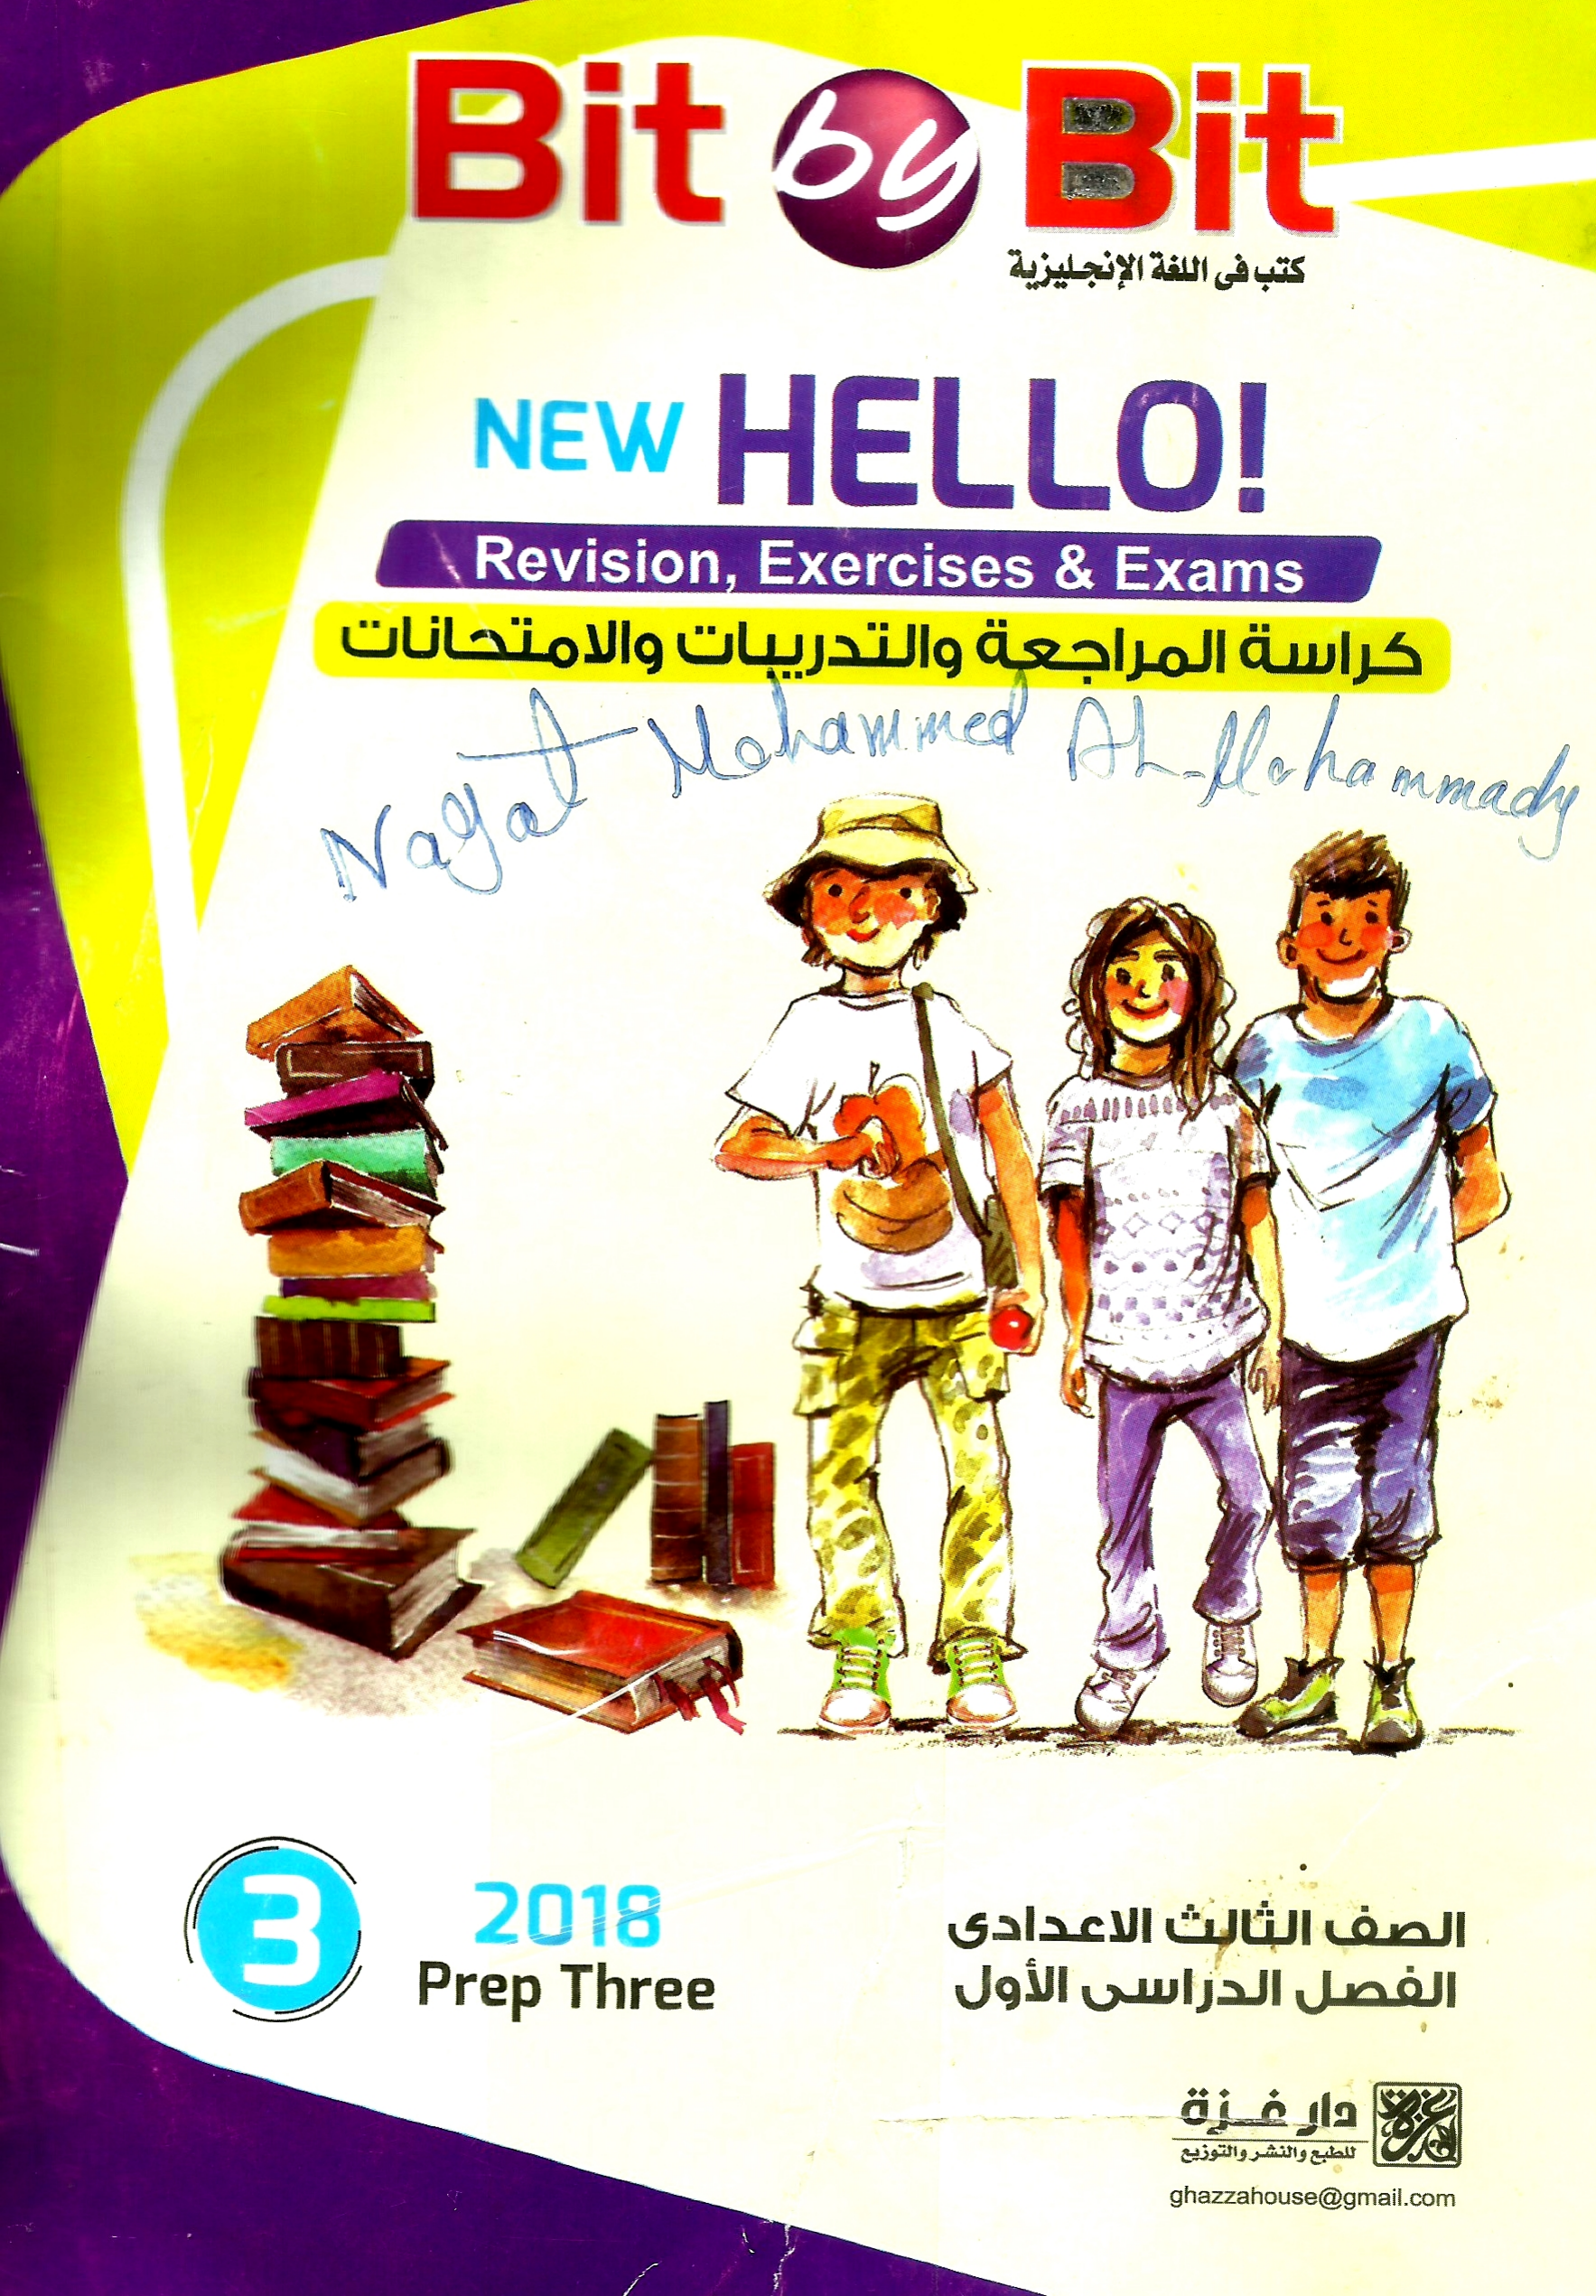 Bit by Bit
كتب فى اللغة الإنجليزية
NEW HELLO!
Revision, Exercises & Exams
كراسة المراجعة والتدريبات والامتحانات
Nagat Mohammed Al-Mohammady
3
2018
Prep Three
الصف الثالث الاعدادى
الفصل الدراسى الأول
دار غزة
للطبع والنشر والتوزيع
ghazzahouse@gmail.com